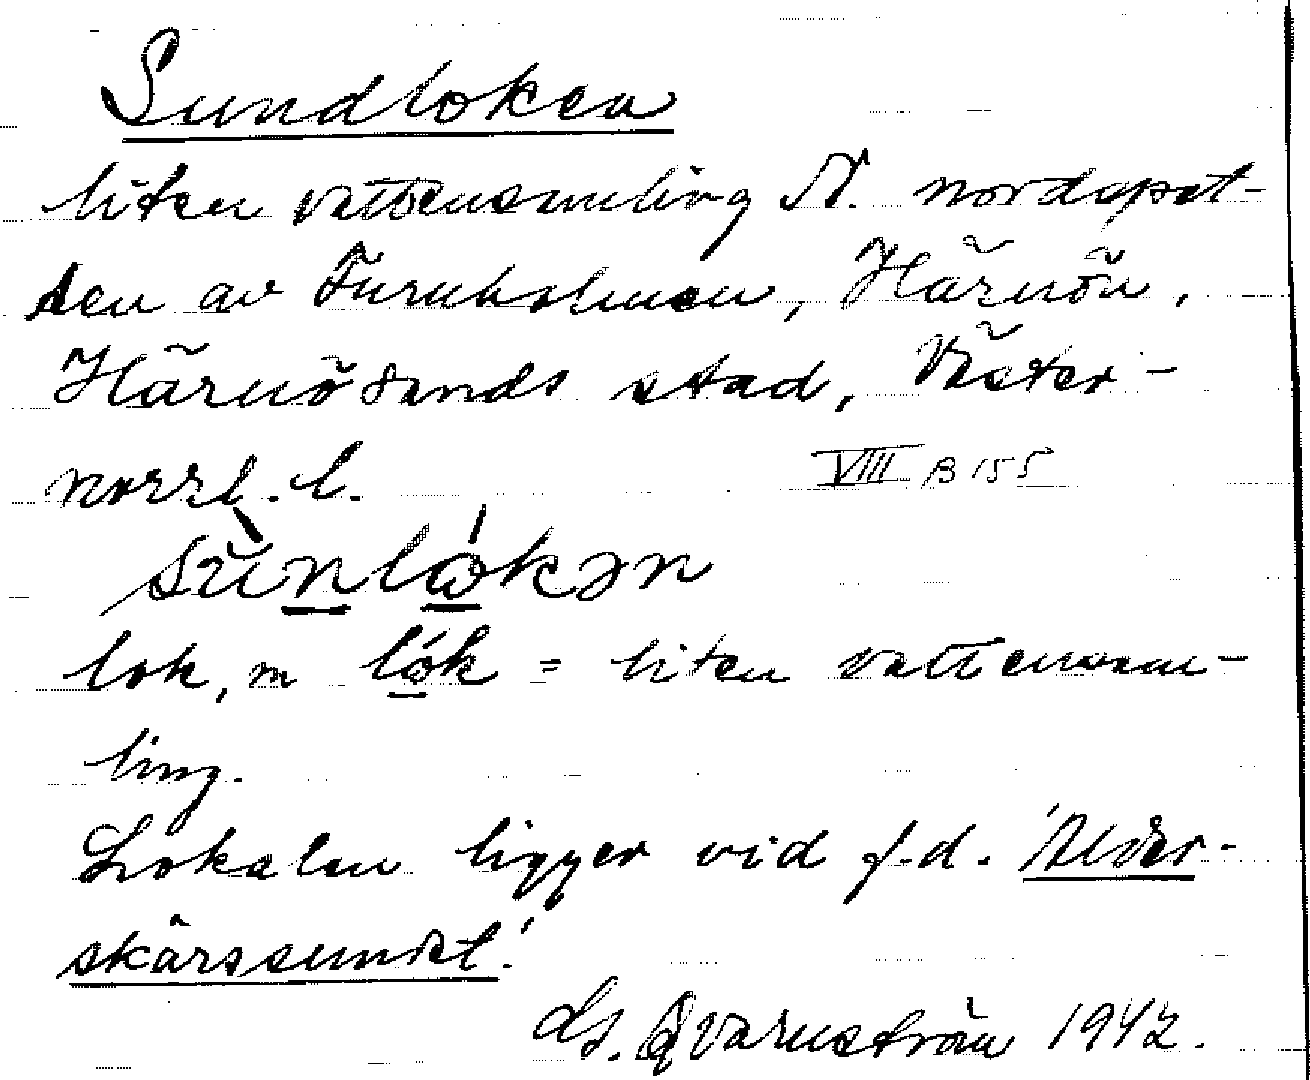 Sundloken
liten vattensamling N. nordspet-
sen av Furuholmen, Härnön,
Härnösands stad, Väster-
norrl. l.
VIII B 155
sùnlókən
lok, m lók = liten vattensam-
ling.
Lokalen ligger vid f.d. 'Alder-
skärssundet'.
Ls. Qvarnström 1942.